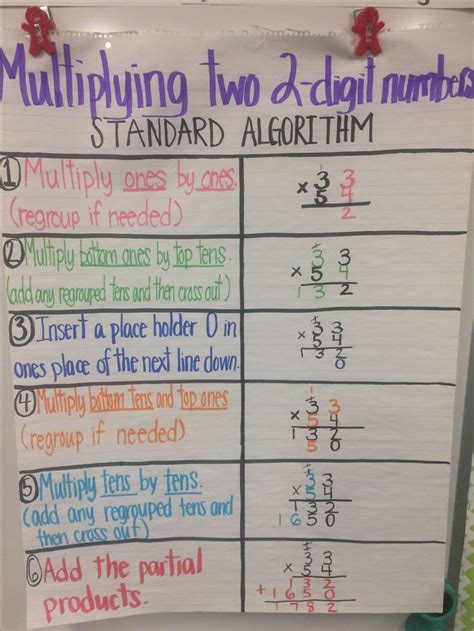 Multiplying two 2-digit numbers
STANDARD ALGORITHM
① Multiply ones by ones.
(regroup if needed)
1
33
× 54
2
② Multiply bottom ones by top tens.
(add any regrouped tens and then cross out)
1
33
× 54
132
③ Insert a place holder 0 in
ones place of the next line down.
1
33
× 54
132
0
④ Multiply bottom tens and top ones.
(regroup if needed)
1
33
× 54
132
50
⑤ Multiply tens by tens.
(add any regrouped tens and
then cross out)
1
33
× 54
132
1650
⑥ Add the partial
products.
1
33
× 54
132
+1650
1782